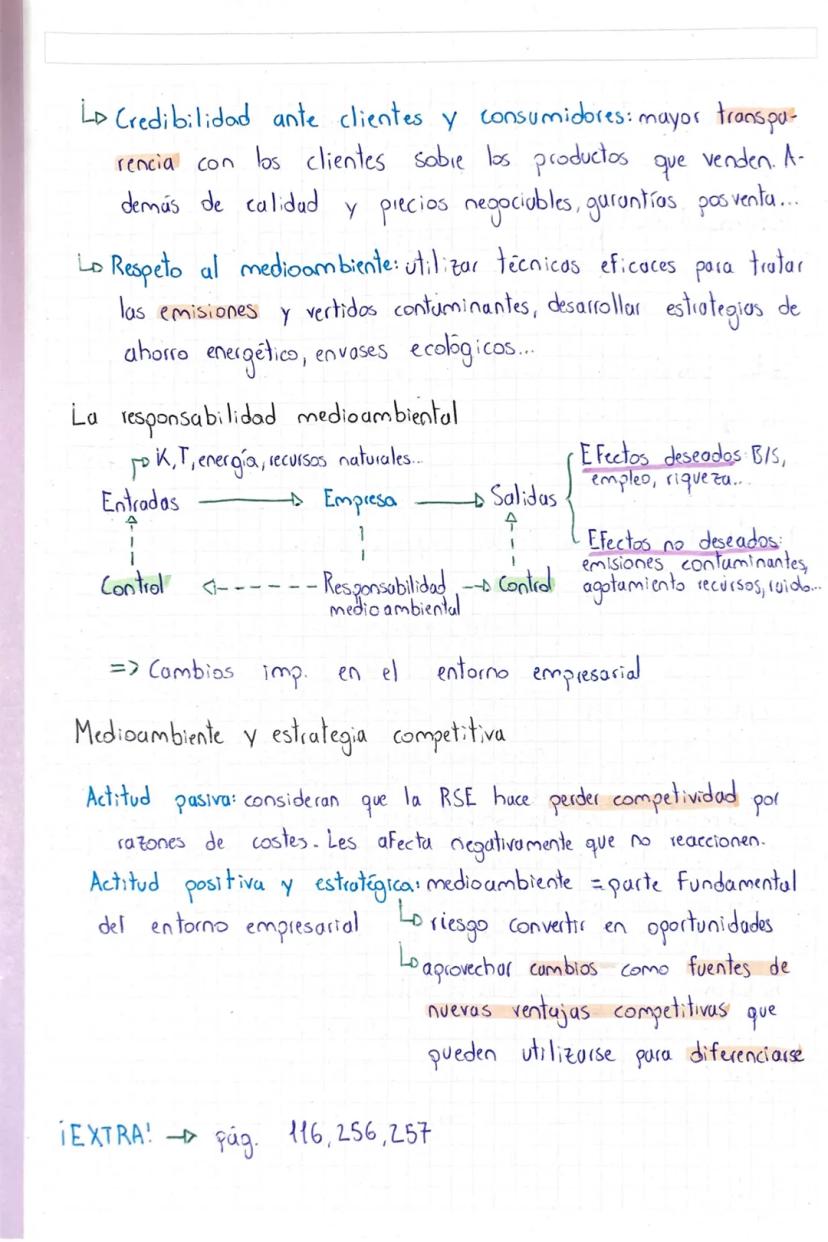 ↳ Credibilidad ante clientes y consumidores: mayor transpa-
rencia con los clientes sobre los productos que venden. A-
demás de calidad y precios negociables, garantías posventa...
↳ Respeto al medioambiente: utilizar técnicas eficaces para tratar
las emisiones y vertidos contaminantes, desarrollar estrategias de
ahorro energético, envases ecológicos...
La responsabilidad medioambiental
K, T, energía, recursos naturales...
Entradas → Empresa → Salidas
Efectos deseados: B/S,
empleo, riqueza...
Efectos no deseados:
emisiones contaminantes,
agotamiento recursos, ruido...
Control ← Responsabilidad → Control
medioambiental
=> Cambios imp. en el entorno empresarial
Medioambiente y estrategia competitiva
Actitud pasiva: consideran que la RSE hace perder competividad por
razones de costes. Les afecta negativamente que no reaccionen.
Actitud positiva y estratégica: medioambiente = parte fundamental
del entorno empresarial
↳ riesgo convertir en oportunidades
↳ aprovechar cambios como fuentes de
nuevas ventajas competitivas que
pueden utilizarse para diferenciarse
¡EXTRA! → pág. 116, 256, 257